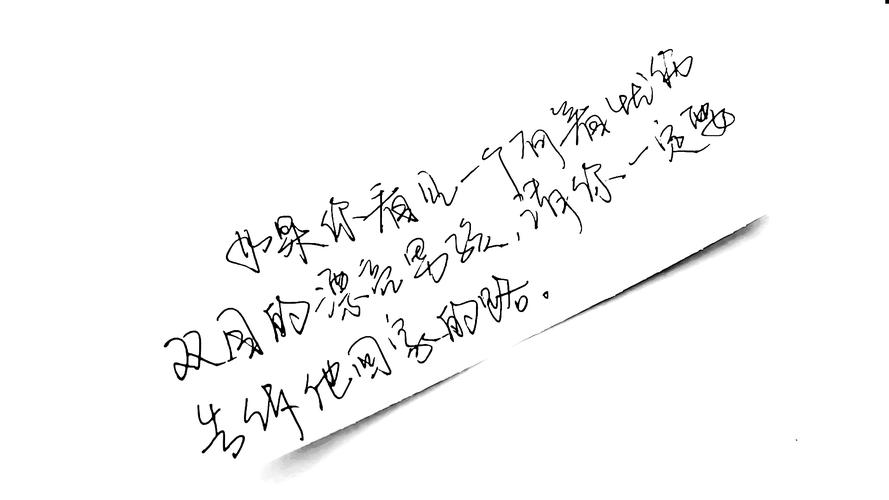 如果你看见一个闪着忧伤
双目的漂亮男孩，请你一定要
告诉他回家的路。